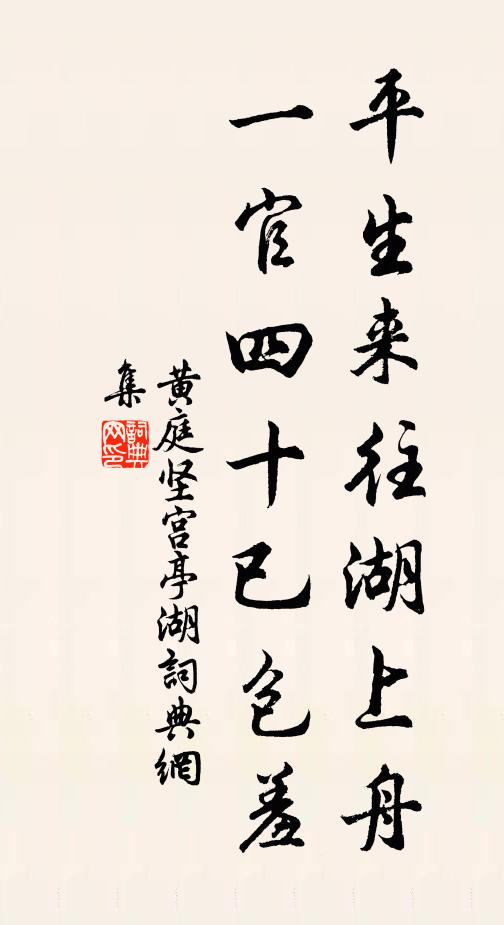 平生来往湖上舟
一官四十已包羞
黄庭坚宫亭湖詞典網
集
詞典
网印